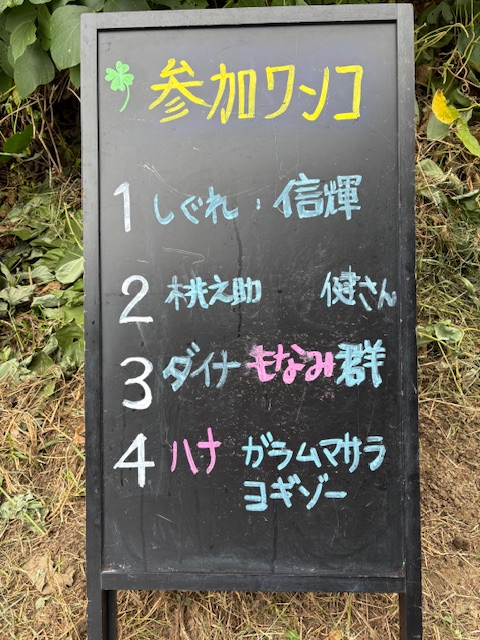 参加ワンコ
1 しぐれ・信輝
2 桃之助 健さん
3 ダイナ もなみ 群
4 ハナ ガラムマサラ
ヨギゾー